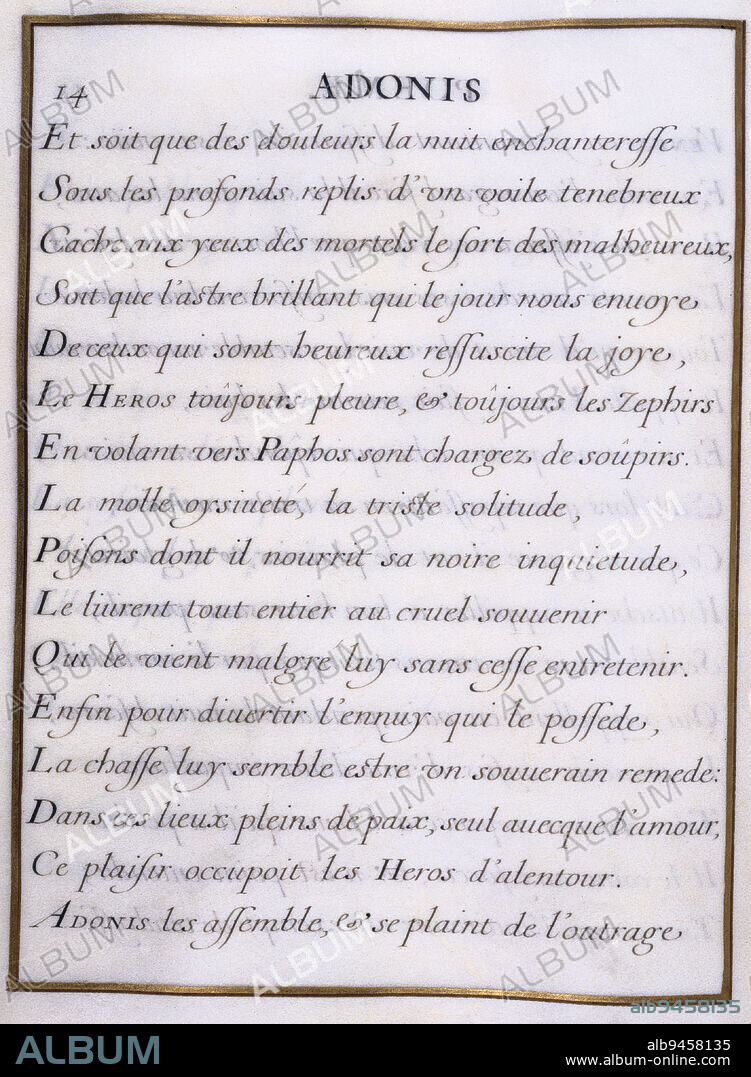 14 ADONIS
Et soit que des douleurs la nuit enchanteresse
Sous les profonds replis d'vn voile tenebreux
Cache aux yeux des mortels le sort des malheureux,
Soit que l'astre brillant qui le jour nous enuoye
De ceux qui sont heureux ressuscite la joye,
Le HEROS toûjours pleure, & toûjours les Zephirs
En volant vers Paphos sont chargez de soûpirs.
La molle oysiueté, la triste solitude,
Poisons dont il nourrit sa noire inquietude,
Le liurent tout entier au cruel souuenir
Qui le vient malgré luy sans cesse entretenir.
Enfin pour diuertir l'ennuy qui le possede,
La chasse luy semble estre vn souuerain remede:
Dans ces lieux pleins de paix, seul auecque l'amour,
Ce plaisir occupoit les Heros d'alentour.
ADONIS les assemble, & se plaint de l'outrage
alb9458135
ALBUM
alb9458135
www.album-online.com